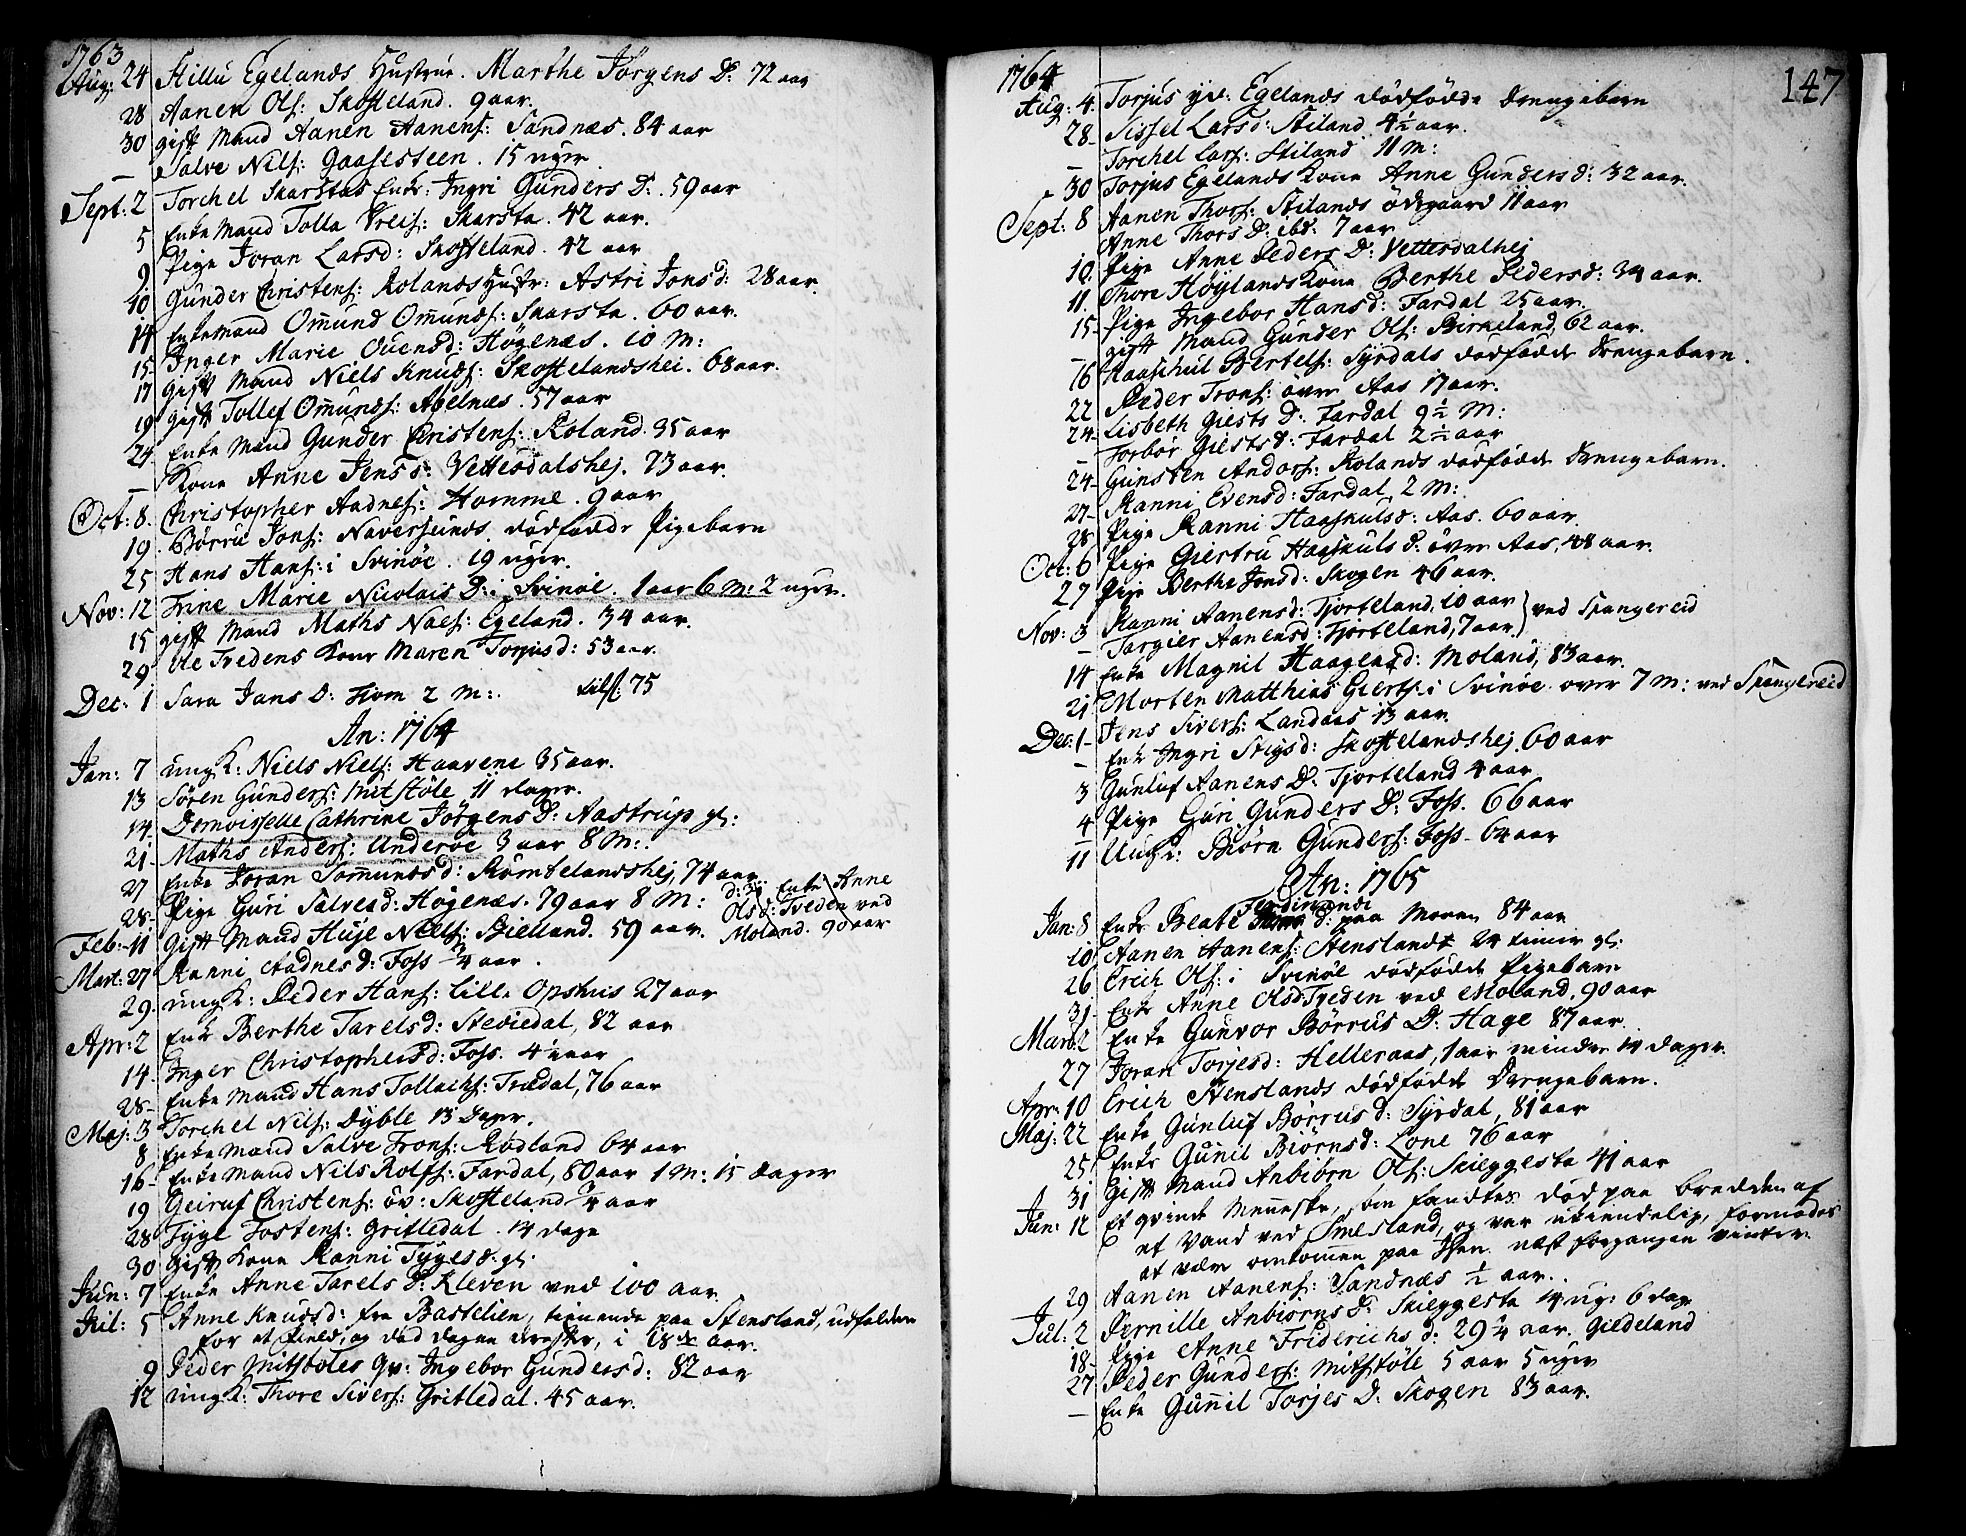 1763
Aug: 24 Hustrue. Marthe Jörgens D: 72 aar
28 Aanen Ols: Skofteland. 9 aar.
30 gift Mand Aanen Aanens: Sandnæs. 84 aar
– Salve Nils: Gaasesteen. 15 uger
Sept: 2 Torchel Skarstas Enke: Ingri Gunders D: 59 aar
5 Enke Mand Skarsta. 42 aar.
9 Pige Joran Larsd: Skofteland. 42 aar
10 Gunder Christens: Rolands Hustr: Astri Jonsd: 28 aar.
14 Enkemand Omund Omunds: Skarsta. 60 aar.
15 Inger Marie Ouensd: Högenæs. 10 M:
17 gift Mand Niels Knuds: Skoftelandshei. 68 aar.
19 gift Tollef Omunds: Abelnæs. 57 aar
24 Enke Mand Gunder Christens: Roland. 35 aar
– Kone Anne Jens D: Vettesdalshej. 73 aar.
Oct: 8. Christopher Aadnes: Homme. 9 aar
19. Börru Jons: Naversunds dödfödde Pigebarn
25 Hans Hans: i Svinöe. 19 uger.
Nov: 12 Trine Marie Nicolais D: i Svinöe. 1 aar 6 M: 2 uger.
15 gift Mand Maths Naes: Egeland. 34 aar.
29 Ole Tvedens Kone Maren Torjusd: 53 aar.
Dec: 1 Sara Jans D: 2 M: 75
An: 1764
Jan: 7 ungK: Niels Niels: Haavene 35 aar.
13 Sören Gunders: Mitstöle 11 dager.
14. Demoiselle Cathrine Jörgens D: Aastrup gl:
21. Maths Anders: Underöe 3 aar 8 M:
27 Enke Joran Tomundsd: 74 aar
28. Pige Guri Salvesd: Högenæs. 79 aar 8 M:
d: 31. Enke Anne
Olsd: Tveden ved
Moland. 90 aar
Feb: 11 gift Mand Huje Niels: Bielland. 59 aar.
Mart: 27 Ranni Aadnes D: Foss ¼ aar.
29. ungK: Peder Hans: lille Opshus 27 aar
Apr: 2 Enke Berthe Tarelsd: Steviedal, 82 aar
14. Inger Christophersd: Foss. 4½ aar
28. Enke Mand Hans Tollachs: Trædal, 76 aar
Maj: 3 Torchel Nils: Dyble 13 Dager.
8 Enke Mand Salve Trons: Rödland 64 aar
16. Enke Mand Nils Rolfs: Fardal, 80 aar 1 M: 15 dager
19 Geiruf Christens: öv: Skofteland ¾ aar
28 Tyge Tostens: Gritledal. 14 dage
30 gift Kone Ranni Tyges D. gl:
Jun: 7 Enke Anne Tarels D: Kleven ved 100 aar
Jul: 5 Anne Knudsd: fra Bastelien, tienende paa Stensland, udfalden
for et field, og död dagen derefter, i 18de aar.
9 Peder Mitstöles Qv: Ingebor Gundersd: 82 aar
12 ungK: Thore Sivers: Gritledal. 45 aar.
147
1764
Aug: 4 Torjus Egelands dödfödde Drengebarn
28. Sissel Larsd: Stiland 4½ aar.
– Torchel Lars: Stiland 11 M:
30 Torjus Egelands Kone Anne Gundersd: 32 aar.
Sept: 8 Aanen Thors: Stilands ödegaard 11 aar
Anne Thors D: ibd: 7 aar
10. Pige Anne Peders D: Vettesdalhej
11. Thore Höylands Kone Berthe Pedersd: 34 aar.
15. Pige Ingebor Hansd: Fardal 25 aar.
– gift Mand Gunder Ols: Birkeland, 62 aar.
16 Haaschul Bertels: Syrdals dödfödde Drengebarn.
22 Peder Trons: övre Aas 17 aar.
24. Lisbeth Giests D: Fardal 9½ M:
– Torbör Giestsd: Fardal 2½ aar
24. Gunsten Andors: Rolands dödfödde Drengebarn.
27. Ranni Evensd: Fardal, 2 M:
28 Pige Ranni Haaskulsd: Aas. 60 aar.
Oct: 6 Pige Giertru Haaskuls D: övre Aas, 48 aar.
27 Pige Berthe Jonsd: Skogen 46 aar.
Nov: 3 Ranni Aanensd: Tjorteland, 10 aar } ved Spangereid
– Targier Aanensd: Tjorteland, 7 aar
14 Enke Magnil Haagensd: Moland, 83 aar.
21 Morten Matthias Gierts: i Svinöe over 7 M: ved Spangereid
Dec: 1. Jens Sivers: Landaas 13 aar.
– Enke Ingri Stigsd: Skoftelandshej 60 aar
3 Gunluf Aanens D: Tjorteland 4 aar
4 Pige Guri Gunders D: Foss. 66 aar
11 UngK: Biörn Gunders: Foss. 64 aar
An: 1765
Jan: 8 Enke Beate Ferdinandi D: paa Moven 84 aar
10 Aanen Aanens: Stensland 24 timer gl:
26 Erich Ols: i Svinöe dödfödde Pigebarn
31. Enke Anne Olsd Tveden ved Moland. 90 aar
Mart: 2 Enke Gunvor Börrus D: Hage 87 aar.
27 Joran Torjesd: Helleraas, 1 aar minder 14 dager.
Apr: 10 Erich Stenslands dödfödde Drengebarn.
Maj: 22 Enke Gunluf Börrus D: Syrdal, 81 aar
25. Enke Gunil Biörnsd: Lone 76 aar
31 gift Mand Anbiörn Ols: Skieggesta 41 aar
Jun: 12 Et qvinde Menneske, som fandtes död paa bredden af
et Vand ved Smesland, og var ukiendelig, formodes
at være omkommen paa Isen næst forgangen vinter.
29 Aanen Aanens: Sandnæs ½ aar.
Jul: 2 Pernille Anbiörns D: Skieggesta 14 ug: 6 dag
18. Pige Anne Friderichs d: 29¼ aar. Gieldeland
27 Peder Gunders: Mitstöle 5 aar 5 uger
– Enke Gunnil Torjes D: Skogen 83 aar.